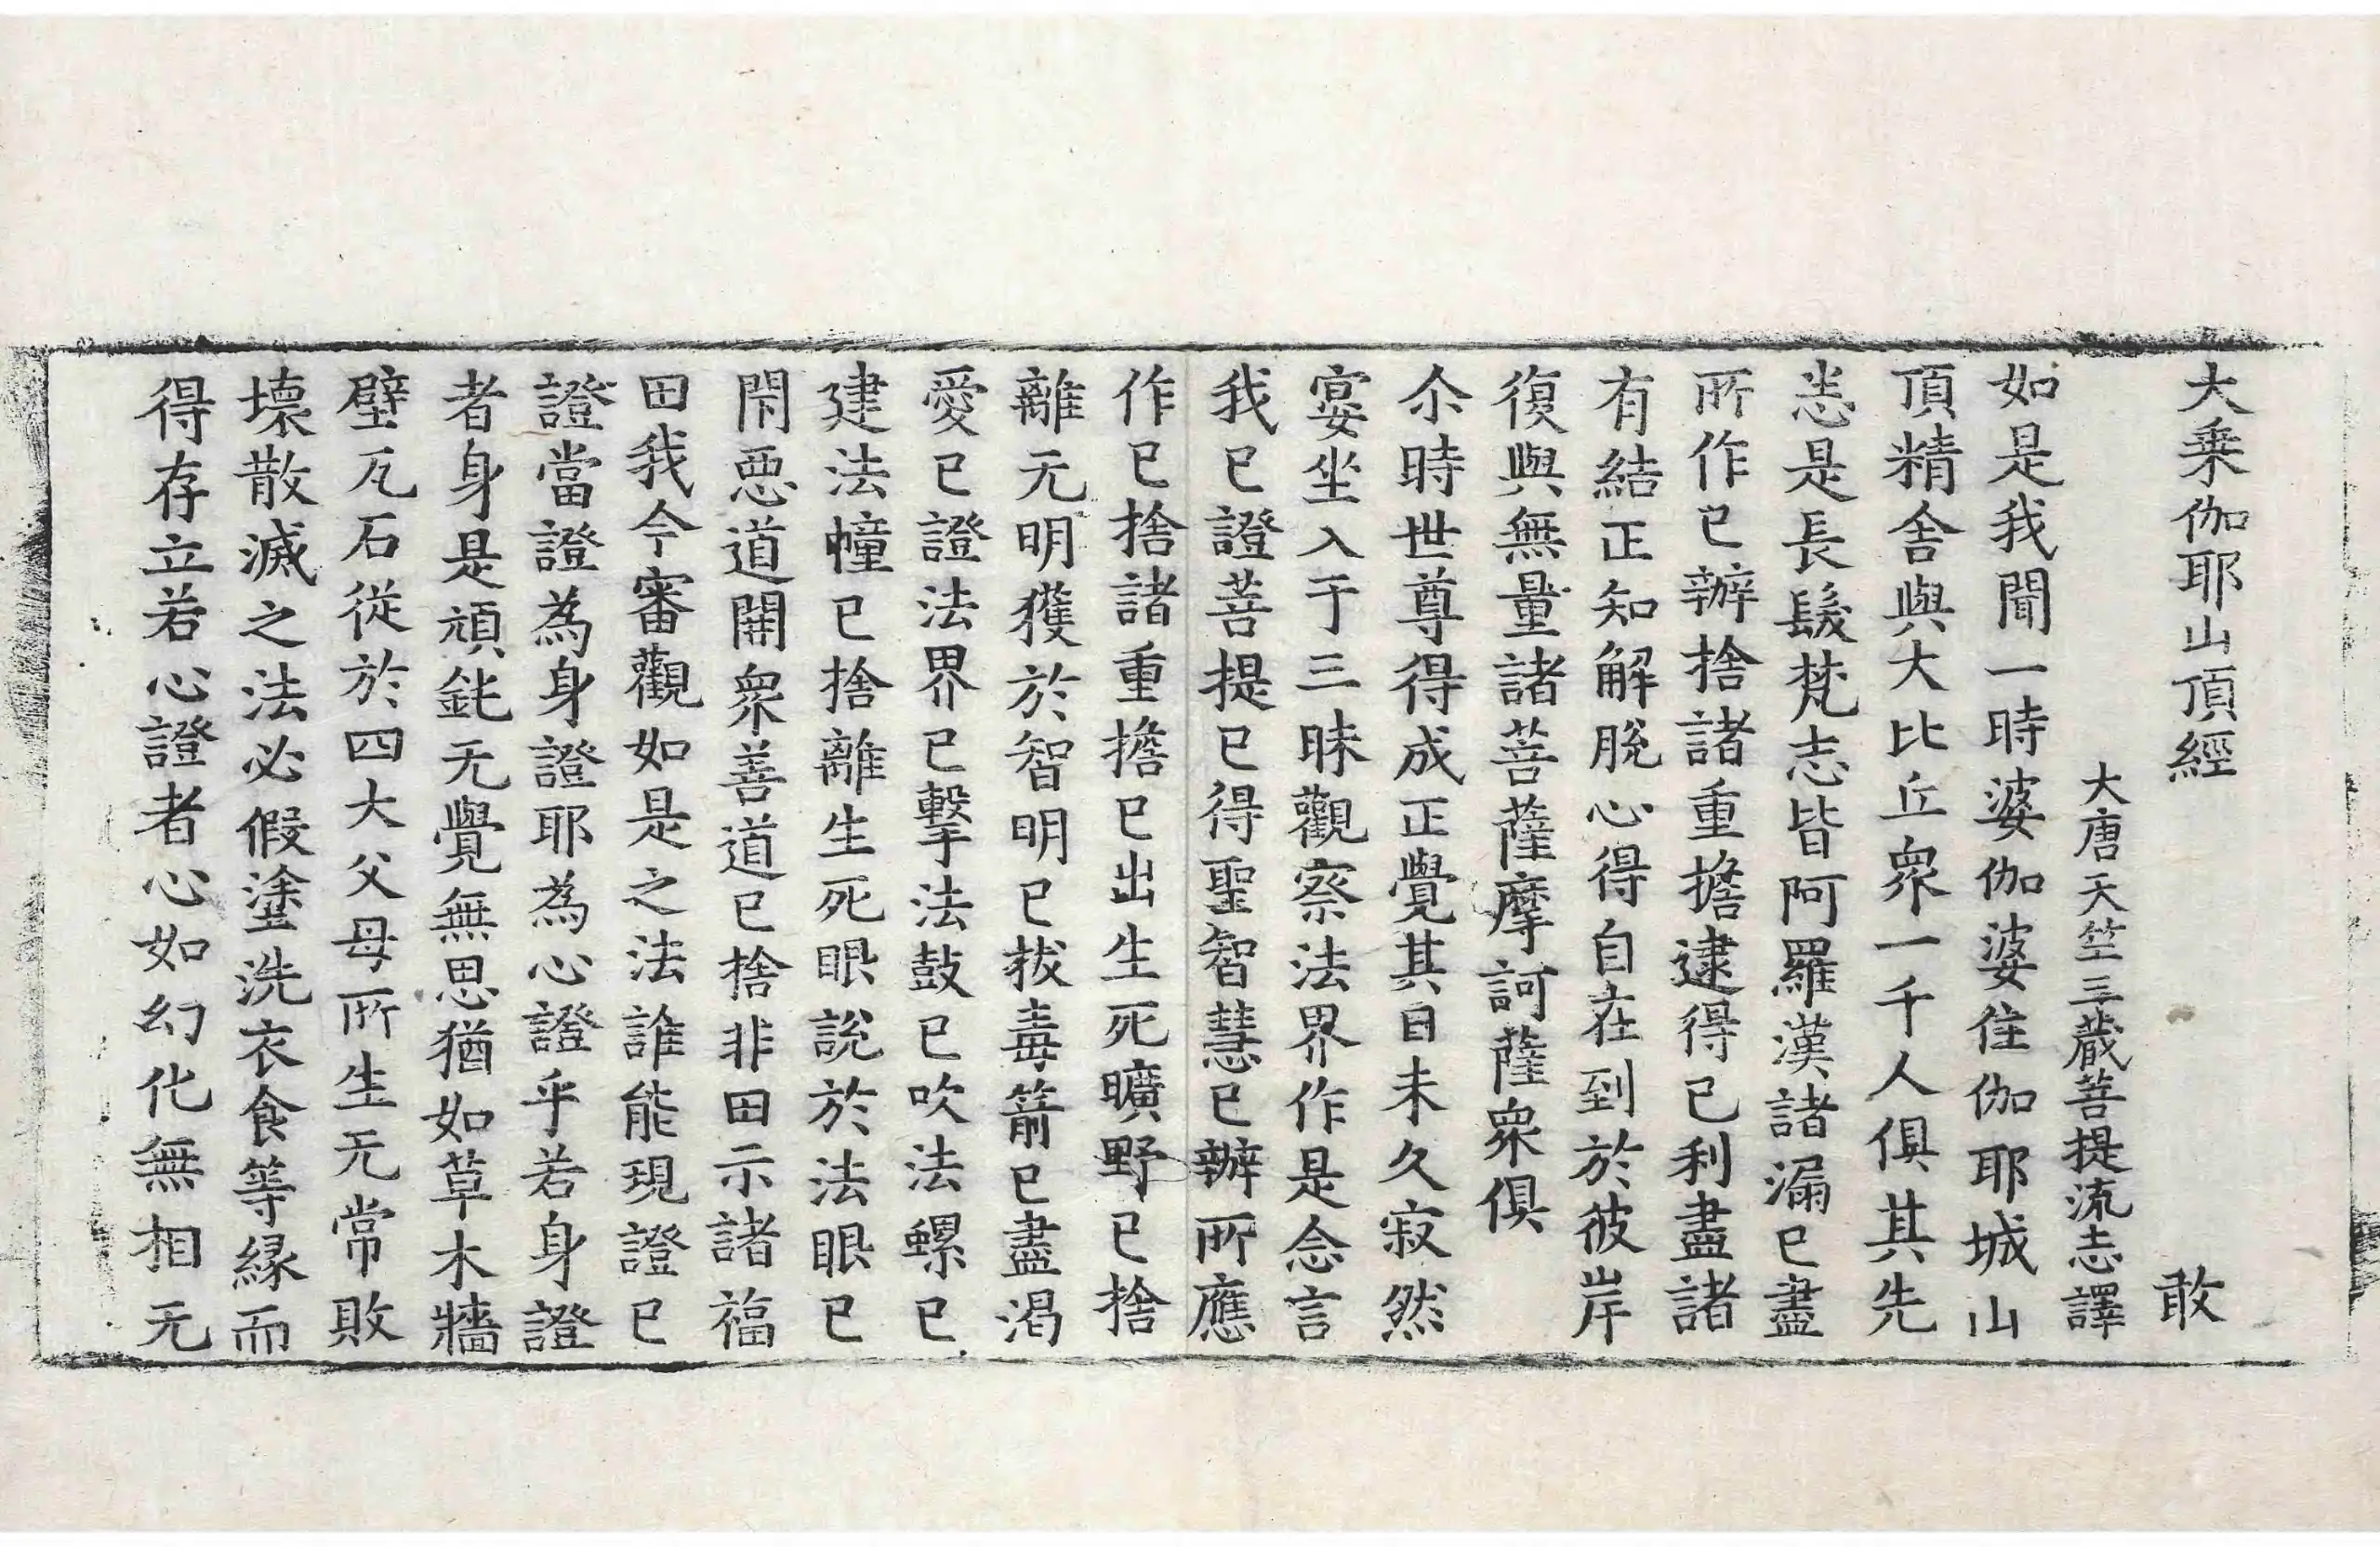 大乗伽耶山頂經 敢
大唐天竺三藏菩提流志譯
如是我聞一時婆伽婆住伽耶城山
頂精舍與大比丘衆一千人俱其先
悉是長髮梵志皆阿羅漢諸漏已盡
所作已辦捨諸重擔逮得已利盡諸
有結正知解脫心得自在到於彼岸
復與無量諸菩薩摩訶薩衆俱
尒時世尊得成正覺其日未久寂然
宴坐入于三昧觀察法界作是念言
我已證菩提已得聖智慧已辦所應
作已捨諸重擔已出生死曠野已捨
離无明獲於智明已拔毒箭已盡渴
愛已證法界已擊法鼓已吹法螺已
建法幢已捨離生死眼說於法眼已
閇惡道開衆善道已捨非田示諸福
田我今審觀如是之法誰能現證已
證當證為身證耶為心證乎若身證
者身是頑鈍无覺無思猶如草木牆
壁瓦石從於四大父母所生无常敗
壞散滅之法必假塗洗衣食等緣而
得存立若心證者心如幻化無相无